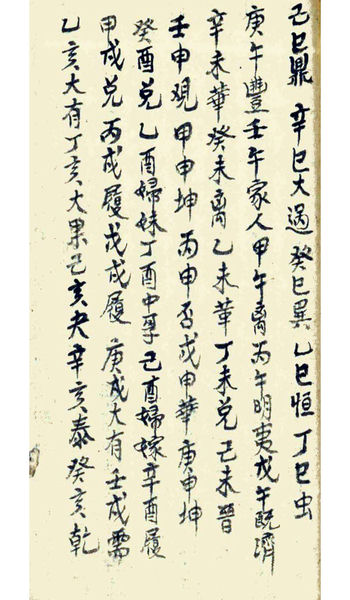 己巳鼎 辛巳大過 癸巳巽 乙巳恒 丁巳虫
庚午豐 壬午家人 甲午离 丙午明夷 戊午既濟
辛未華 癸未离 乙未革 丁未兑 己未晉
壬申观 甲申坤 丙申否 戊申華 庚申坤
癸酉兑 乙酉婦妹 丁酉中孚 己酉婦嫁 辛酉履
甲戌兑 丙戌履 戊戌履 庚戌大有 壬戌需
乙亥大有 丁亥大果 己亥夬 辛亥泰 癸亥乾